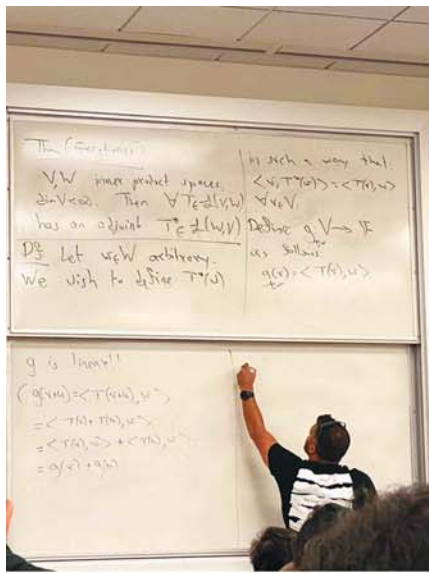 Thm (Existence)
V, W inner product spaces.
dim V < ∞. Then ∀ T ∈ L(V, W)
has an adjoint T* ∈ L(W, V)
Pf: Let w ∈ W arbitrary.
We wish to define T*(w)
in such a way that:
<v, T*(w)> = <T(v), w>
∀ v ∈ V.
Define g: V → F
as follows:
g(v) = <T(v), w>
g is linear!!
(g(v+u) = <T(v+u), w>
= <T(v) + T(u), w>
= <T(v), w> + <T(u), w>
= g(v) + g(u)